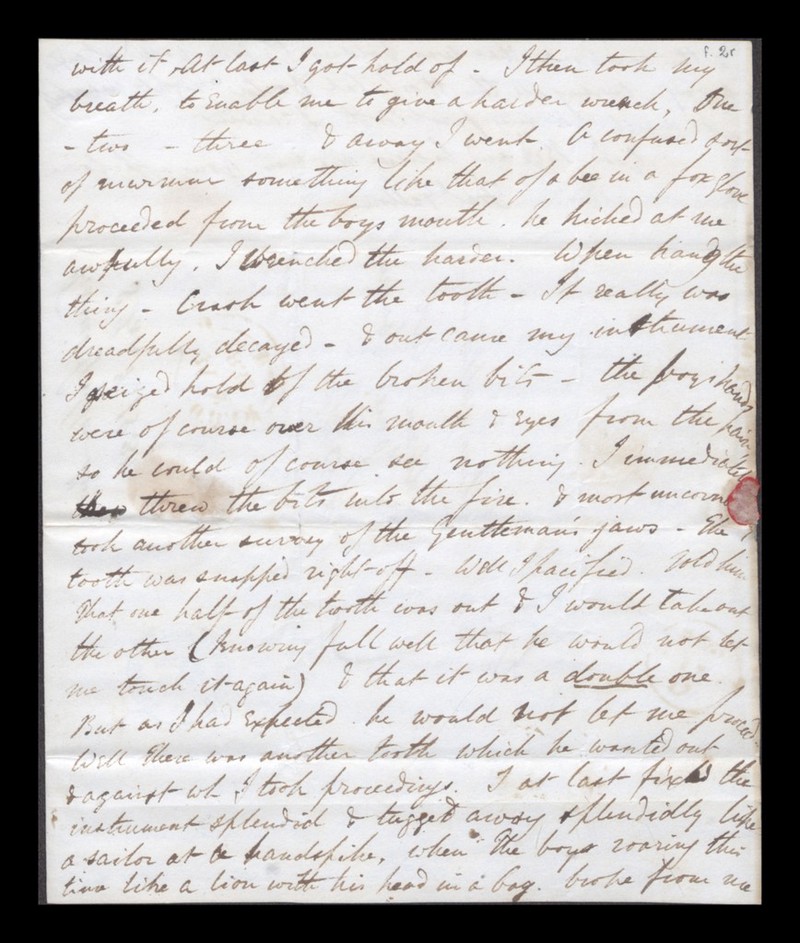 f. 2r
with it At last I got hold of - I then took my
breath, to Enable me to give a harder wrench, One
- two - three & away I went. A confused sort
of murmur something like that of a bee in a foxglove
proceeded from the boys mouth. he kicked at me
awfully. I wrenched the harder. When hang the
thing - Crash went the tooth - It really was
dreadfully decayed - & out came my instrument
I seized hold of the broken bits - the boys hands
were of course over his mouth & Eyes from the pain
so he could of course see nothing. I immediately
then threw the bits into the fire. & most
took another survey of the Gentleman's jaws - The
tooth was snapped right off - Well I pacified. Told him
That one half of the tooth was out & I would take out
the other (Knowing full well that he would not let
me touch it again) & that it was a double one.
But as I had Expected. he would not let me proceed
Well There was another tooth which he wanted out
& against wh I took proceedings. I at last fixed the
instrument splendid & tugged away splendidly like
a sailor at a handspike, when The boys roaring this
time like a lion with his head in a bag. broke from me